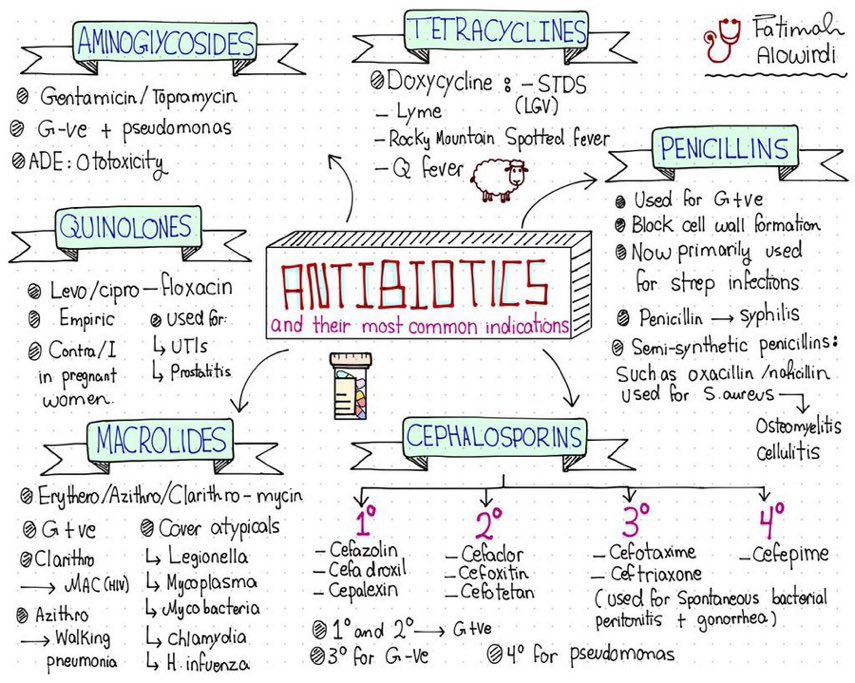 AMINOGLYCOSIDES
Gentamicin/Topramycin
G-ve + pseudomonas
ADE: Ototoxicity
TETRACYCLINES
Doxycycline : - STDS
(LGV)
- Lyme
- Rocky Mountain Spotted fever
- Q fever
Fatimah
Alowirdi
PENICILLINS
Used for G+ve
Block cell wall formation
Now primarily used
for strep infections
Penicillin → syphilis
Semi-synthetic penicillins:
Such as oxacillin/nafcillin
used for S.aureus
Osteomyelitis
Cellulitis
QUINOLONES
Levo/cipro-floxacin
Empiric
Contra/I
in pregnant
women.
used for:
↳ UTIs
↳ Prostatitis
ANTIBIOTICS
and their most common indications
MACROLIDES
Erythero/Azithro/Clarithro-mycin
G+ve
Clarithro
→ MAC (HIV)
Azithro
→ Walking
pneumonia
Cover atypicals
↳ Legionella
↳ Mycoplasma
↳ Mycobacteria
↳ Chlamydia
↳ H infuenza
CEPHALOSPORINS
1°
- Cefazolin
- Cefadroxil
- Cepalexin
2°
- Cefaclor
- Cefoxitin
- Cefotetan
3°
- Cefotaxime
- Ceftriaxone
(used for Spontaneous bacterial
peritonitis + gonorrhea)
4°
- Cefepime
1° and 2° → G+ve
3° for G-ve
4° for pseudomonas